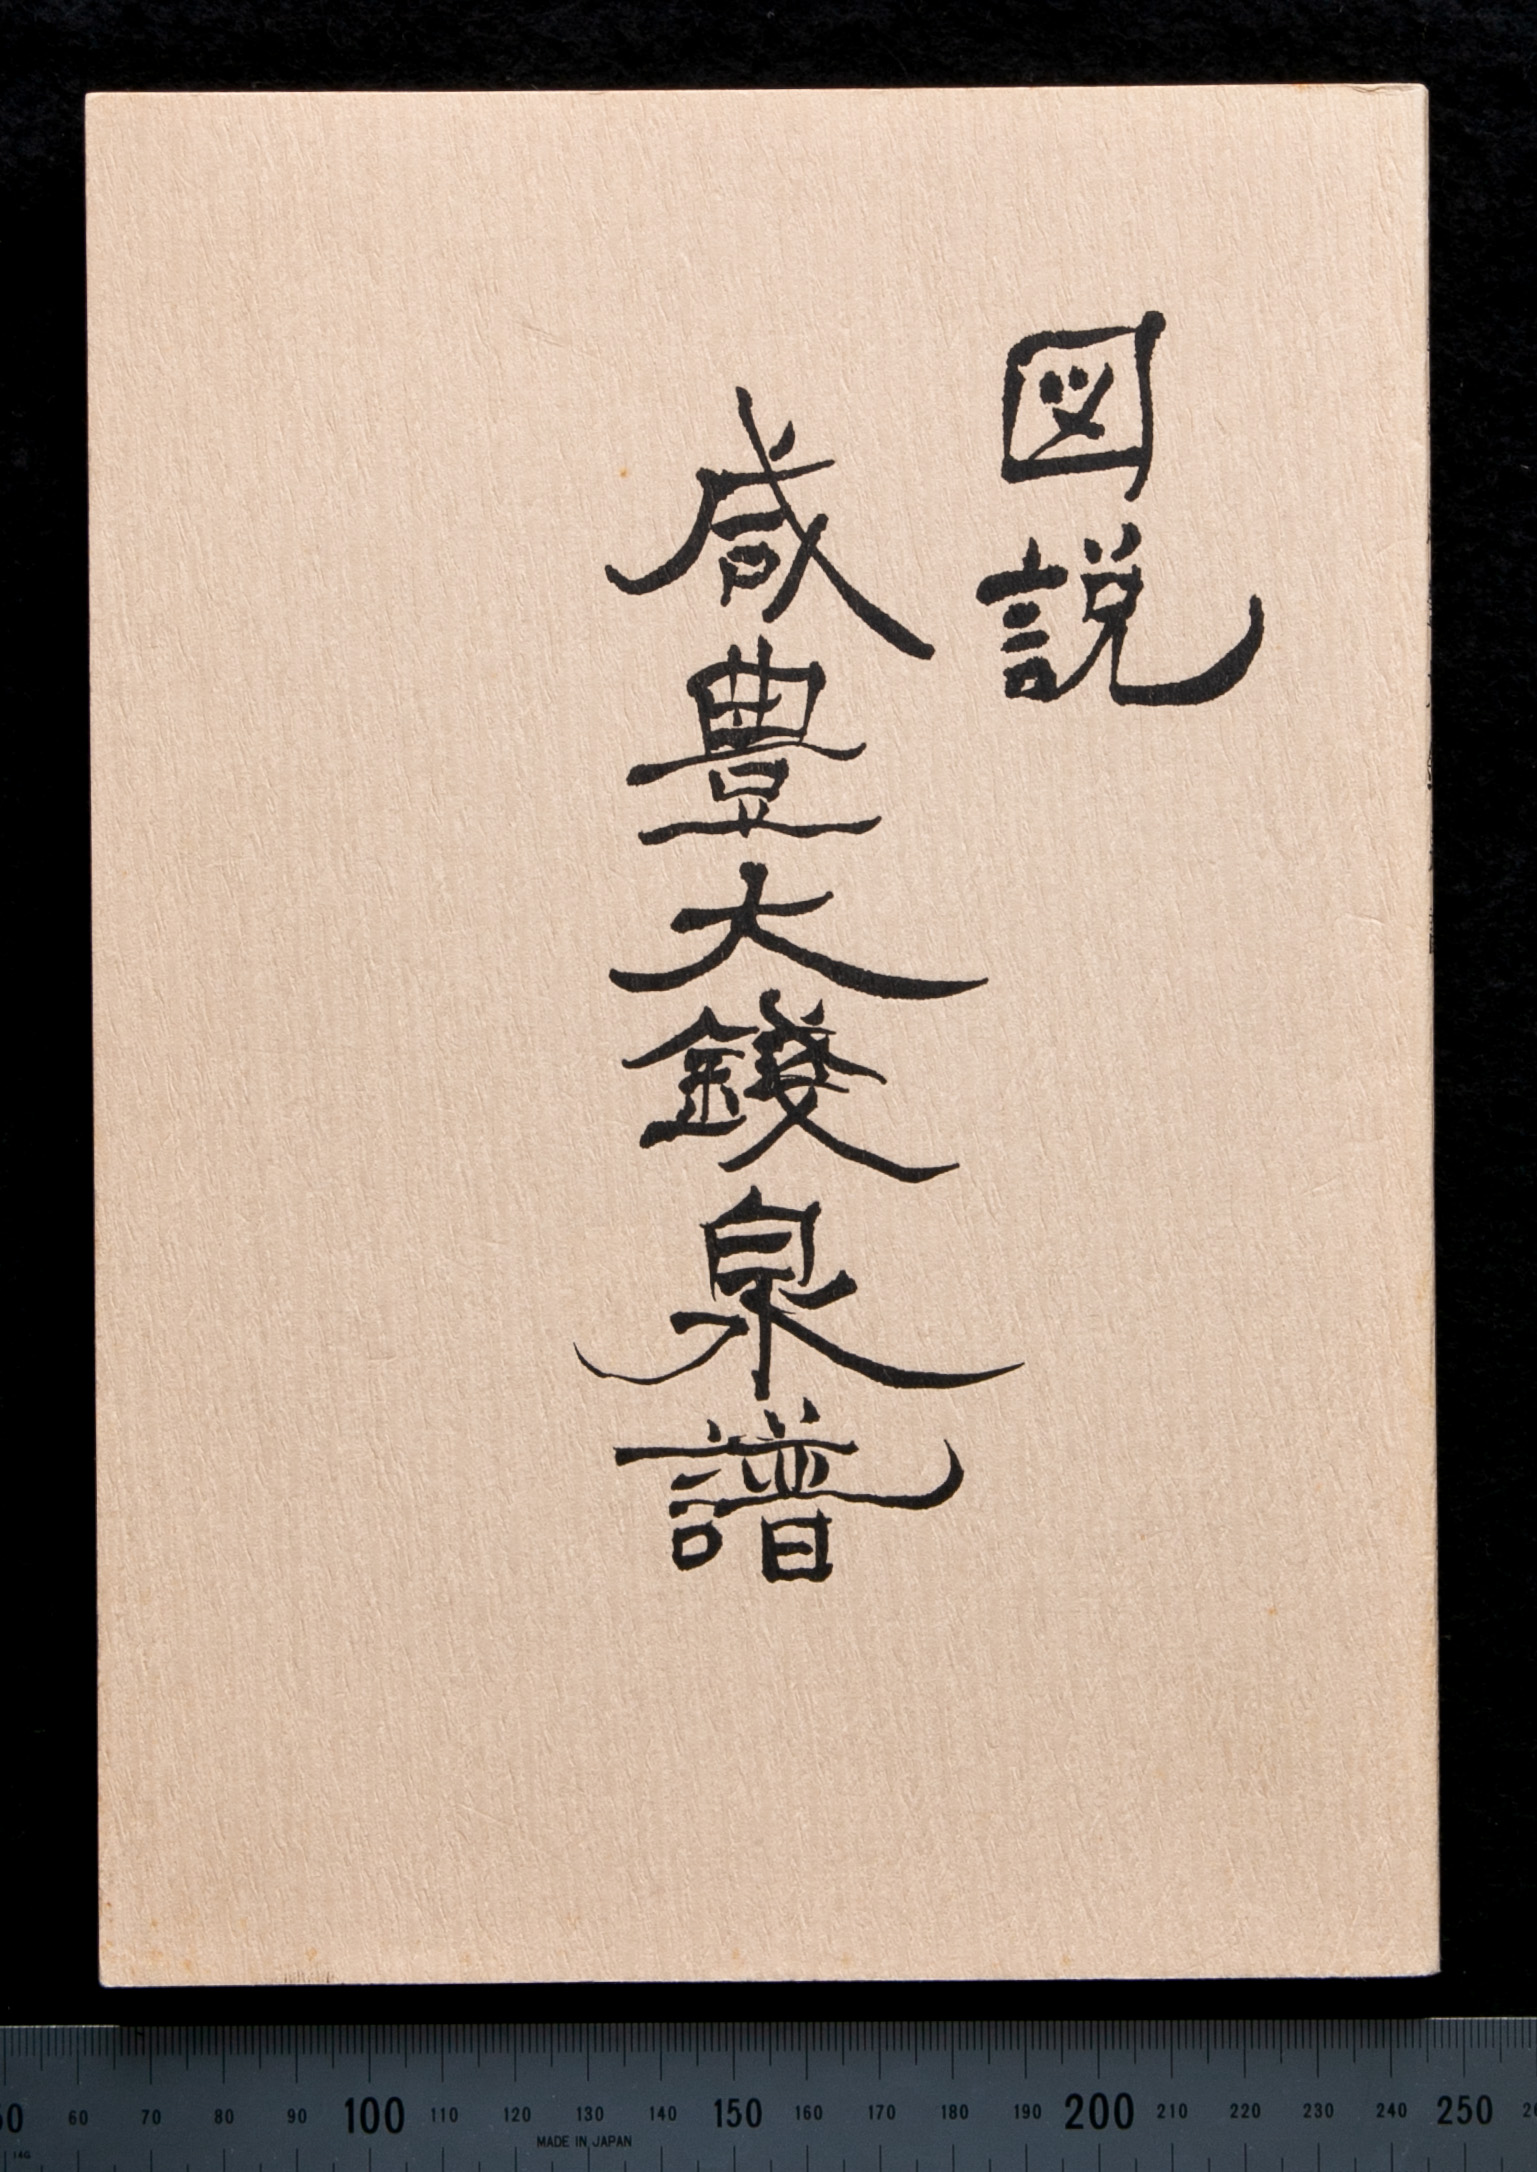 図説
咸豊大錢泉譜
50 60 70 80 90 100 110 120 130 140 150 160 170 180 190 200 210 220 230 240 250
MADE IN JAPAN